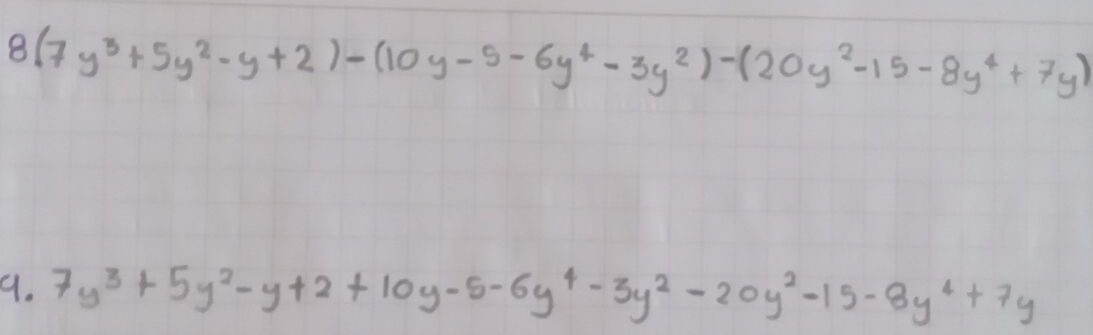 8(7y³+5y²-y+2)-(10y-5-6y⁴-3y²)-(20y²-15-8y⁴+7y)
9. 7y³+5y²-y+2+10y-5-6y⁴-3y²-20y²-15-8y⁴+7y